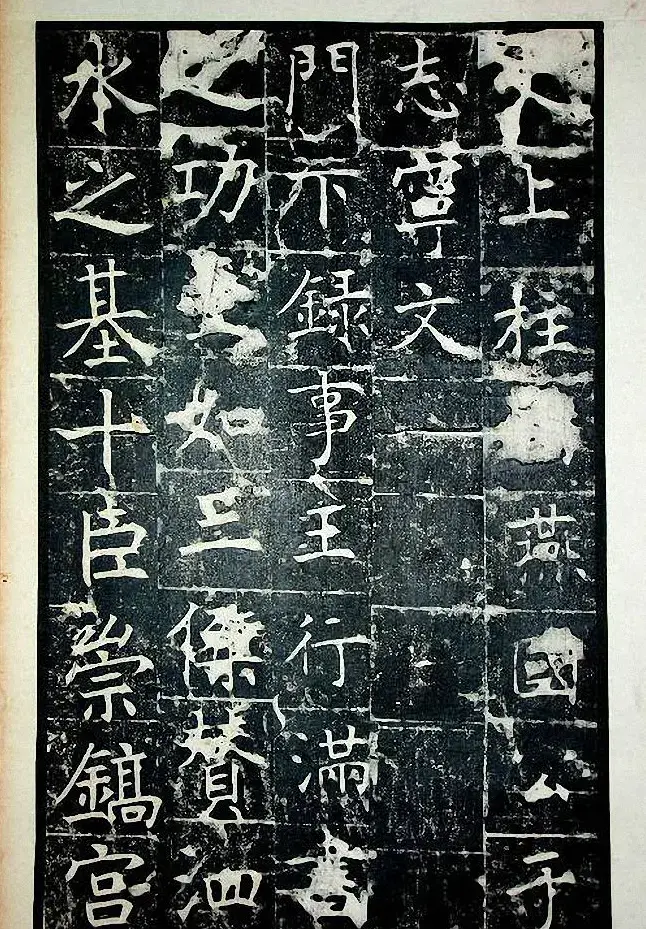 夫上柱燕國公于
志寧文
門下録事王行滿書
之功至如三傑贊泗
水之基十臣崇鎬宮